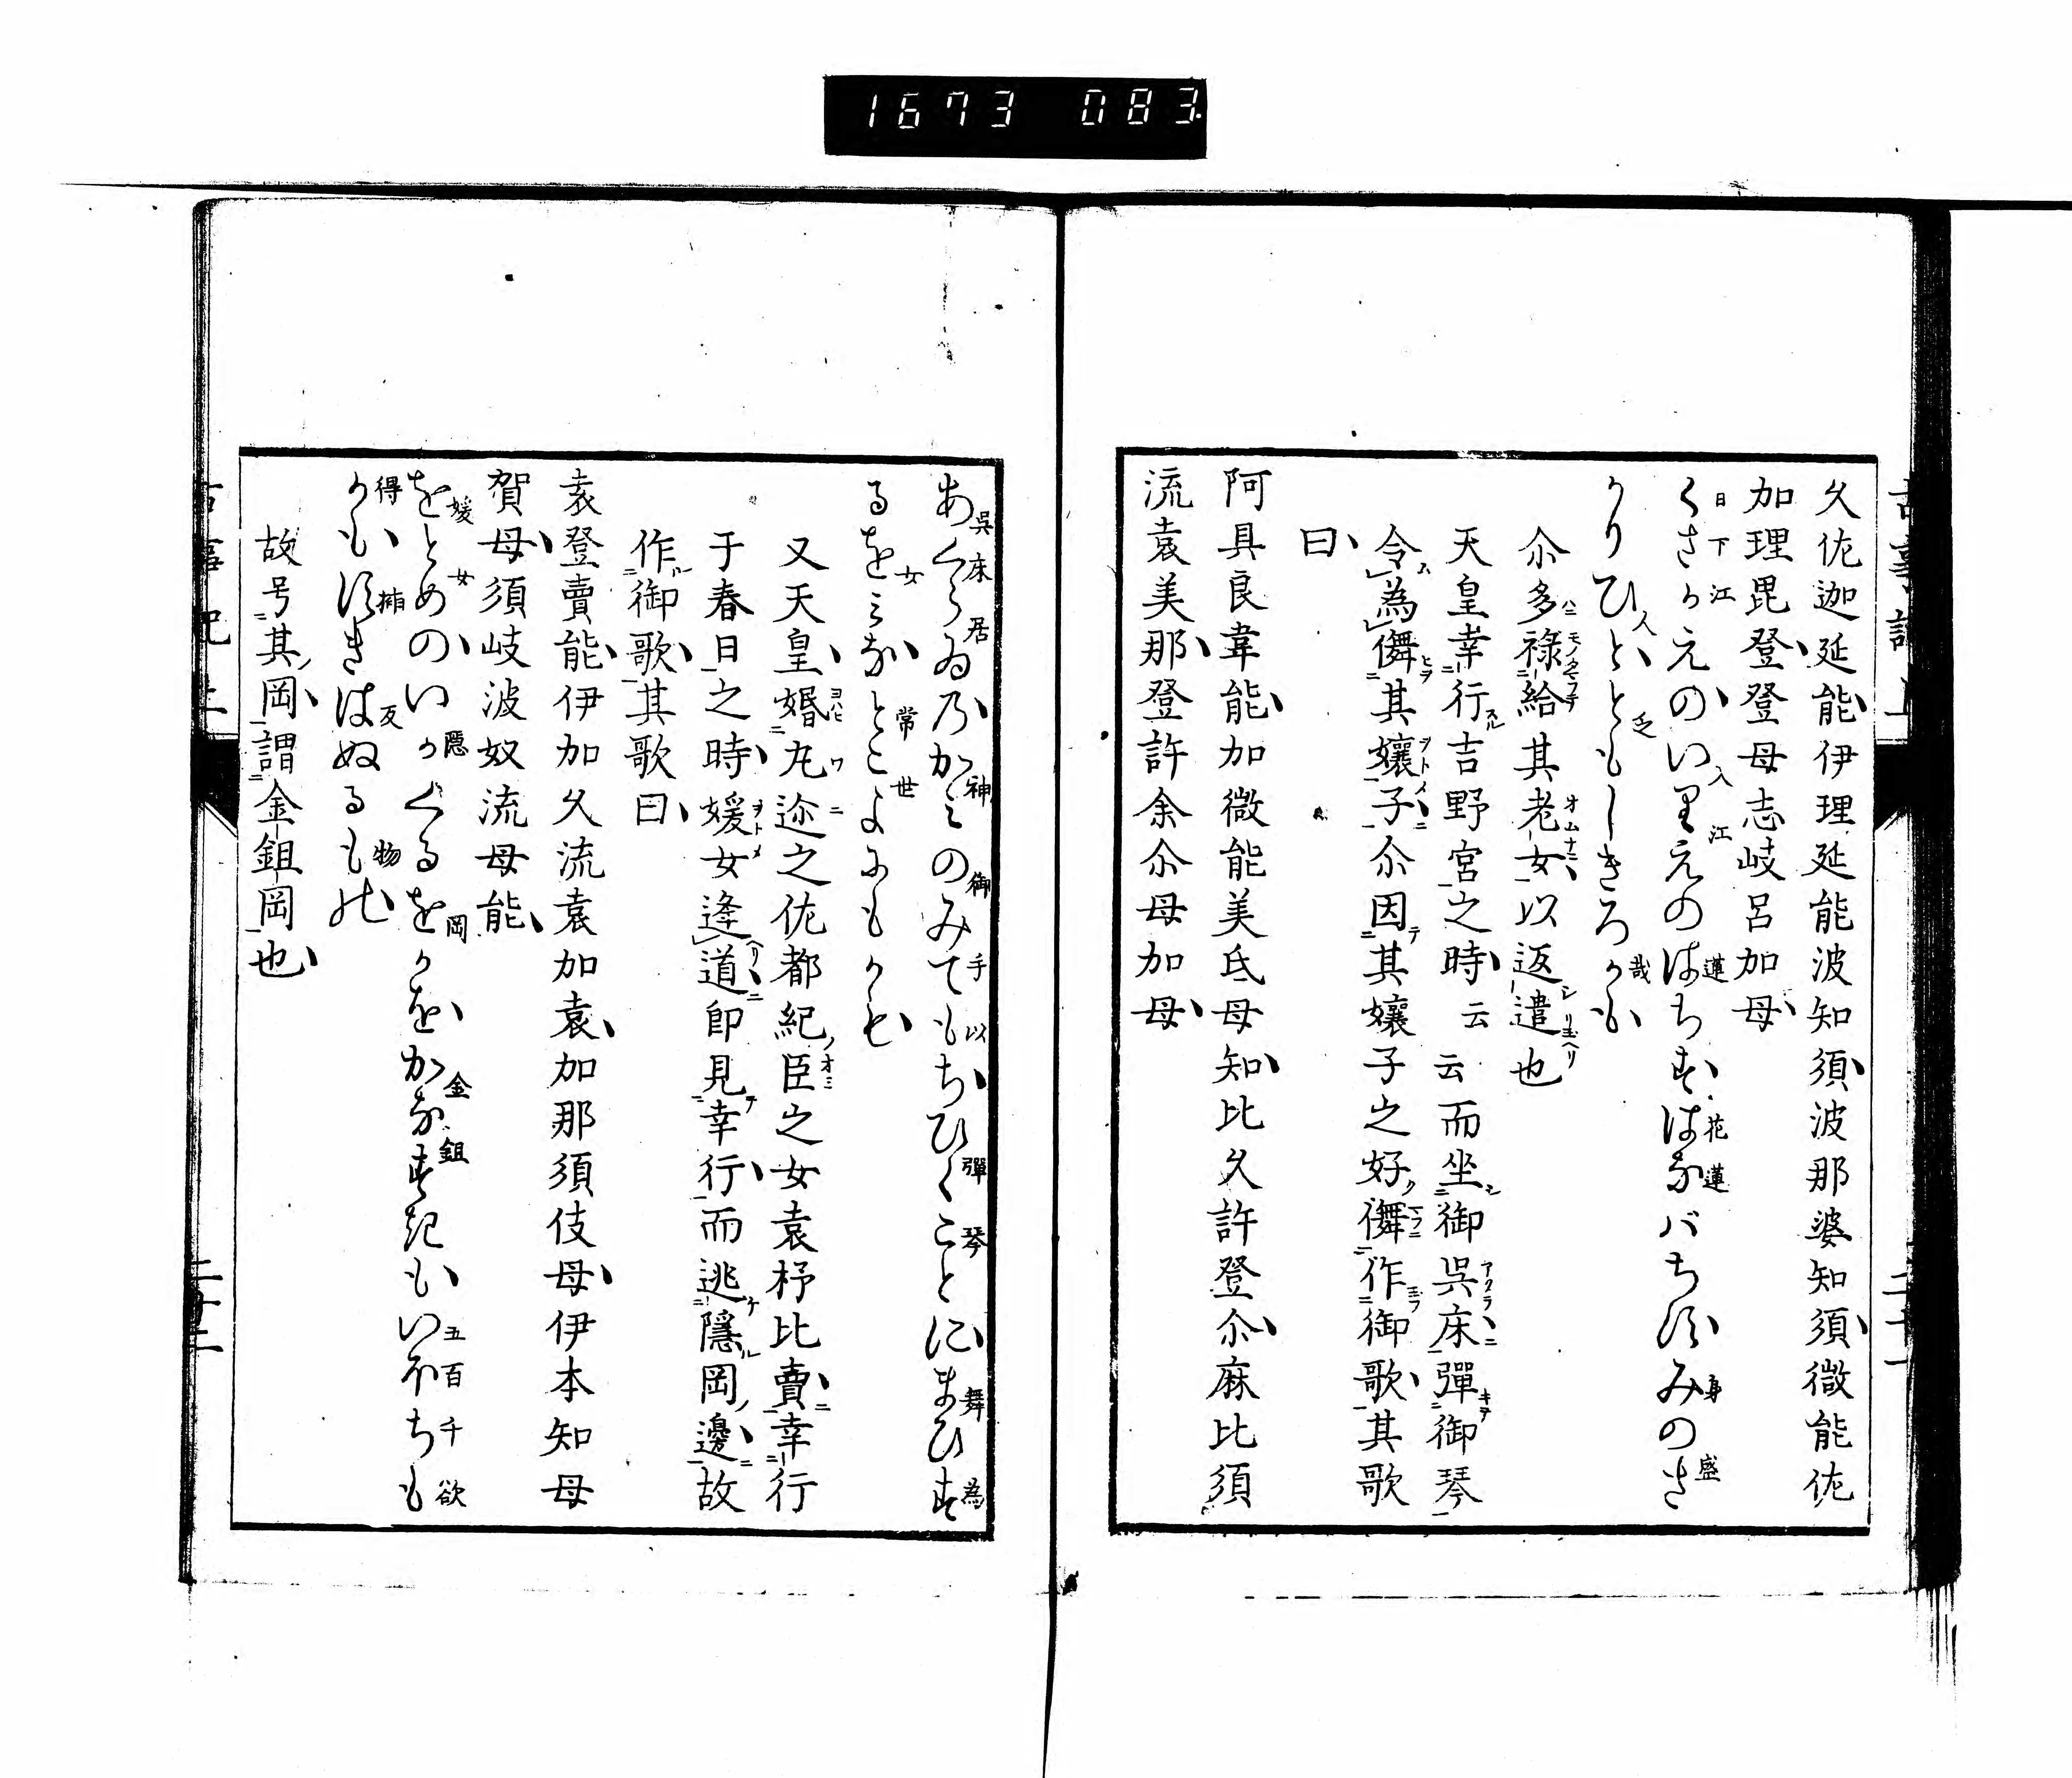 1673 083
久佐迦延能伊理延能波知須波那婆知須微能佐
加理毘登登母志岐呂加母
くさかえのいりえのはちすはなバちすみのさ
かりひとともしきろかも
尒多祿給其老女以返遣也
天皇幸行吉野宮之時云云而坐御呉床彈御琴
令為儛其孃子尒因其孃子之好儛作御歌其歌
曰
阿具良韋能加微能美弖母知比久許登尒麻比須
流袁美那登許余尒母加母
あくらゐのかみのみてもちひくことにまひす
るをみなとこよにもかも
又天皇婚丸迩之佐都紀臣之女袁杼比賣幸行
于春日之時媛女逢道即見幸行而逃隱岡邊故
作御歌其歌曰
袁登賣能伊加久流袁加袁加那須伎母伊本知母
賀母須岐波奴流母能
をとめのいかくるをかをかなすきもいほちも
かもすきはぬるもの
故号其岡謂金鉏岡也